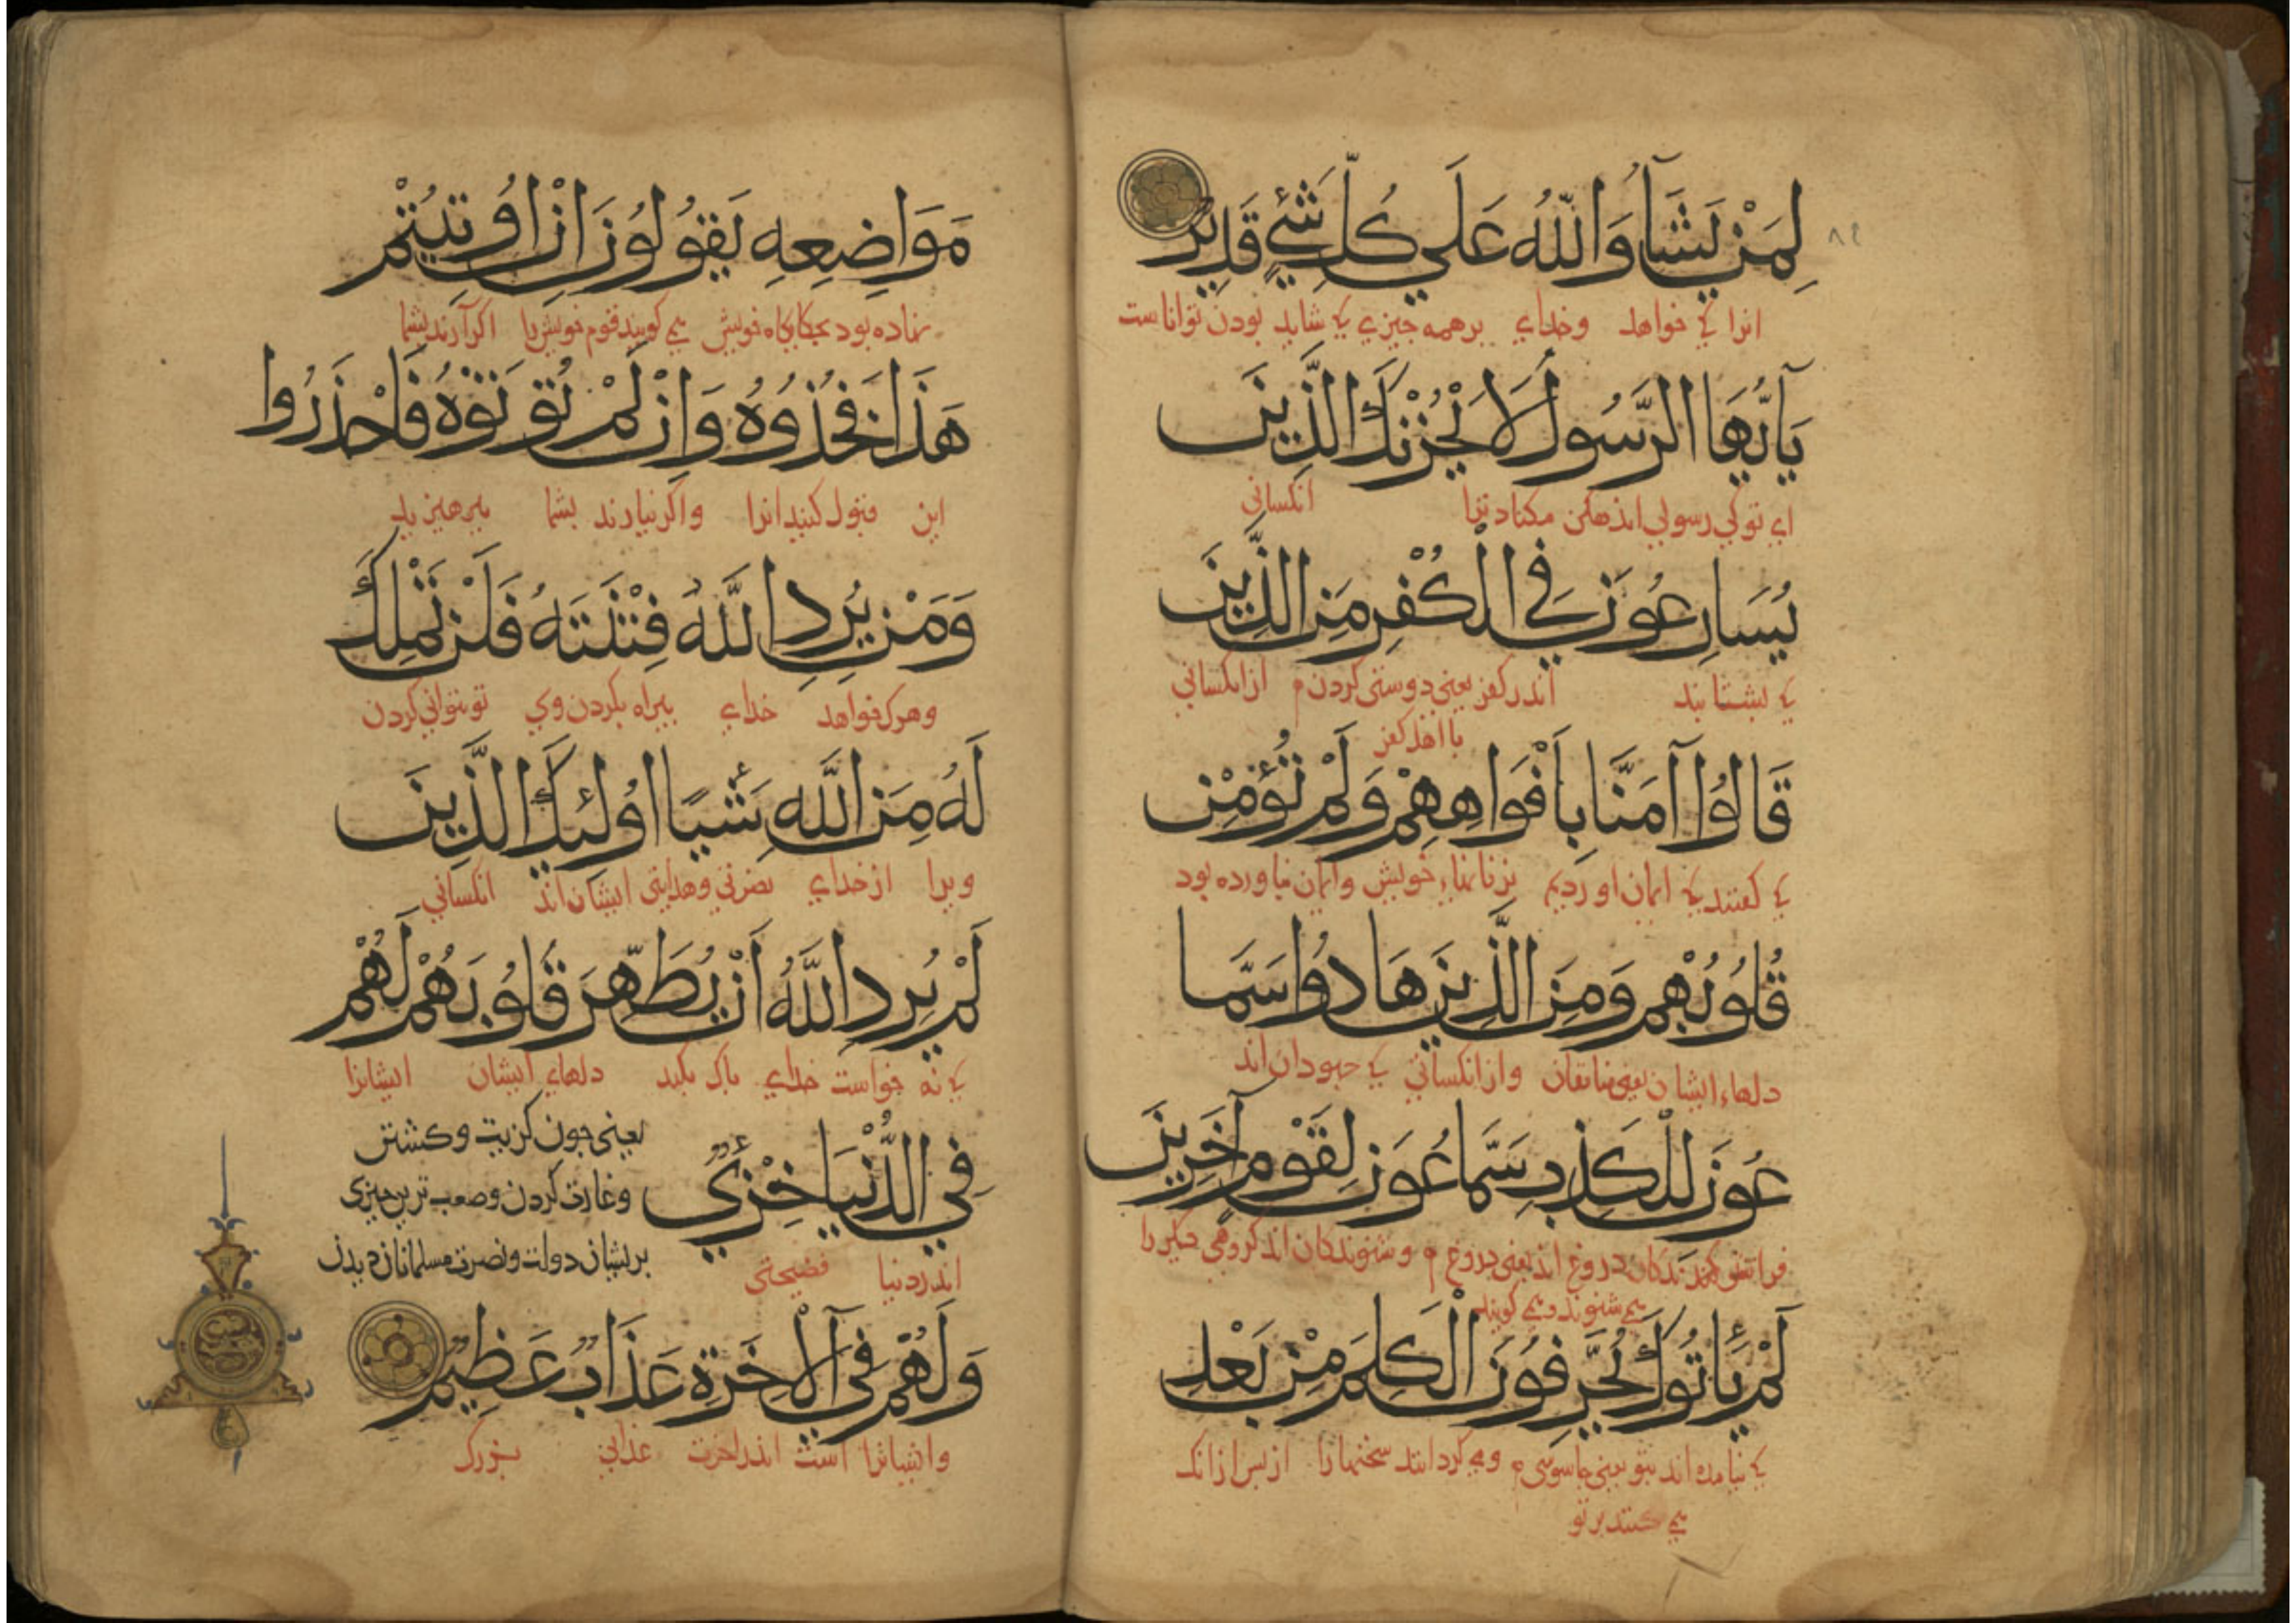 لِمَنْ يَشَآءُ وَاللّٰهُ عَلَي كُلِّ شَيْءٍ قَدِيرٌ
انرا كه خواهد وخداي برهمه چيزي كه شايد بودن تواناست
يَآ اَيُّهَا الرَّسُولُ لَا يُحْزِنْكَ الَّذِينَ
اي توكي رسولي اندهكن مكناد ترا انكساني
يُسَارِعُونَ فِي الْكُفْرِ مِنَ الَّذِينَ
كه بشتابند اندر كفر يعني دوستي كردن ازانكساني
با اهل كفر
قَالُوا آمَنَّا بِاَفْوَاهِهِمْ وَلَمْ تُؤْمِنْ
كه كفتند كه ايمان اورديم بزبانهاء خويش وايمان نياورده بود
قُلُوبُهُمْ وَمِنَ الَّذِينَ هَادُوا سَمَّا
دلهاء ايشان يعني منافقان وازانكساني كه جهودان اند
عُونَ لِلْكَذِبِ سَمَّاعُونَ لِقَوْمٍ آخَرِينَ
دروغ اند يعني بدروغ وشنوندكان اند كروهي ديكر را
مي شنوند و مي كويند
لَمْ يَأْتُوكَ يُحَرِّفُونَ الْكَلِمَ مِنْ بَعْدِ
كه نيامده اند بتو يعني جاسوسي ومي كردانند سخنها را از پس ازانك
مي كنند بر تو
مَوَاضِعِهِ يَقُولُونَ اِنْ اُوتِيتُمْ
نهاده بود بجايكاه خويش مي كويند قوم خويش را اكر آرند بشما
هَذَا فَخُذُوهُ وَاِنْ لَمْ تُؤْتَوْهُ فَاحْذَرُوا
اين قبول كنيد انرا واكر نيارند بشما بپرهيزيد
وَمَنْ يُرِدِ اللّٰهُ فِتْنَتَهُ فَلَنْ تَمْلِكَ
وهرك خواهد خداي بيراه بكردن وي تو نتواني كردن
لَهُ مِنَ اللّٰهِ شَيْئًا اُولٰئِكَ الَّذِينَ
ويرا از خداي نصرتي وهدايتي ايشان اند انكساني
لَمْ يُرِدِ اللّٰهُ اَنْ يُطَهِّرَ قُلُوبَهُمْ لَهُمْ
كه نه خواست خداي پاك بكند دلهاء ايشان ايشانرا
فِي الدُّنْيَا خِزْيٌ
يعني چون كزيت وكشتن
وغارت كردن وصعب ترين چيزي
بريشان دولت ونصرت مسلمانان
اندر دنيا فضيحتي
وَلَهُمْ فِي الْآخِرَةِ عَذَابٌ عَظِيمٌ
وايشانرا است اندر اخرت عذابي بزرك